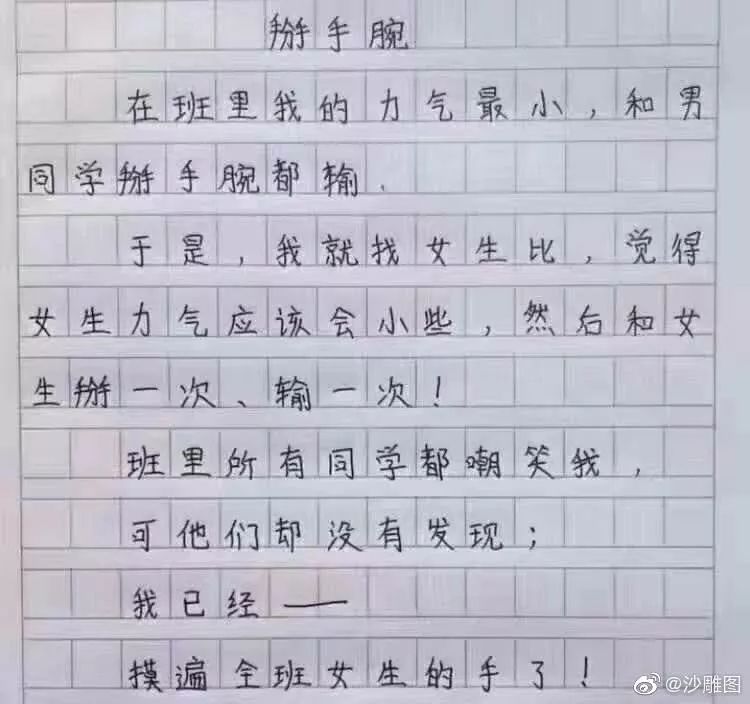 掰手腕
在班里我的力气最小，和男
同学掰手腕都输.
于是，我就找女生比，觉得
女生力气应该会小些，然后和女
生掰一次、输一次！
班里所有同学都嘲笑我，
可他们却没有发现；
我已经——
摸遍全班女生的手了！
@沙雕图